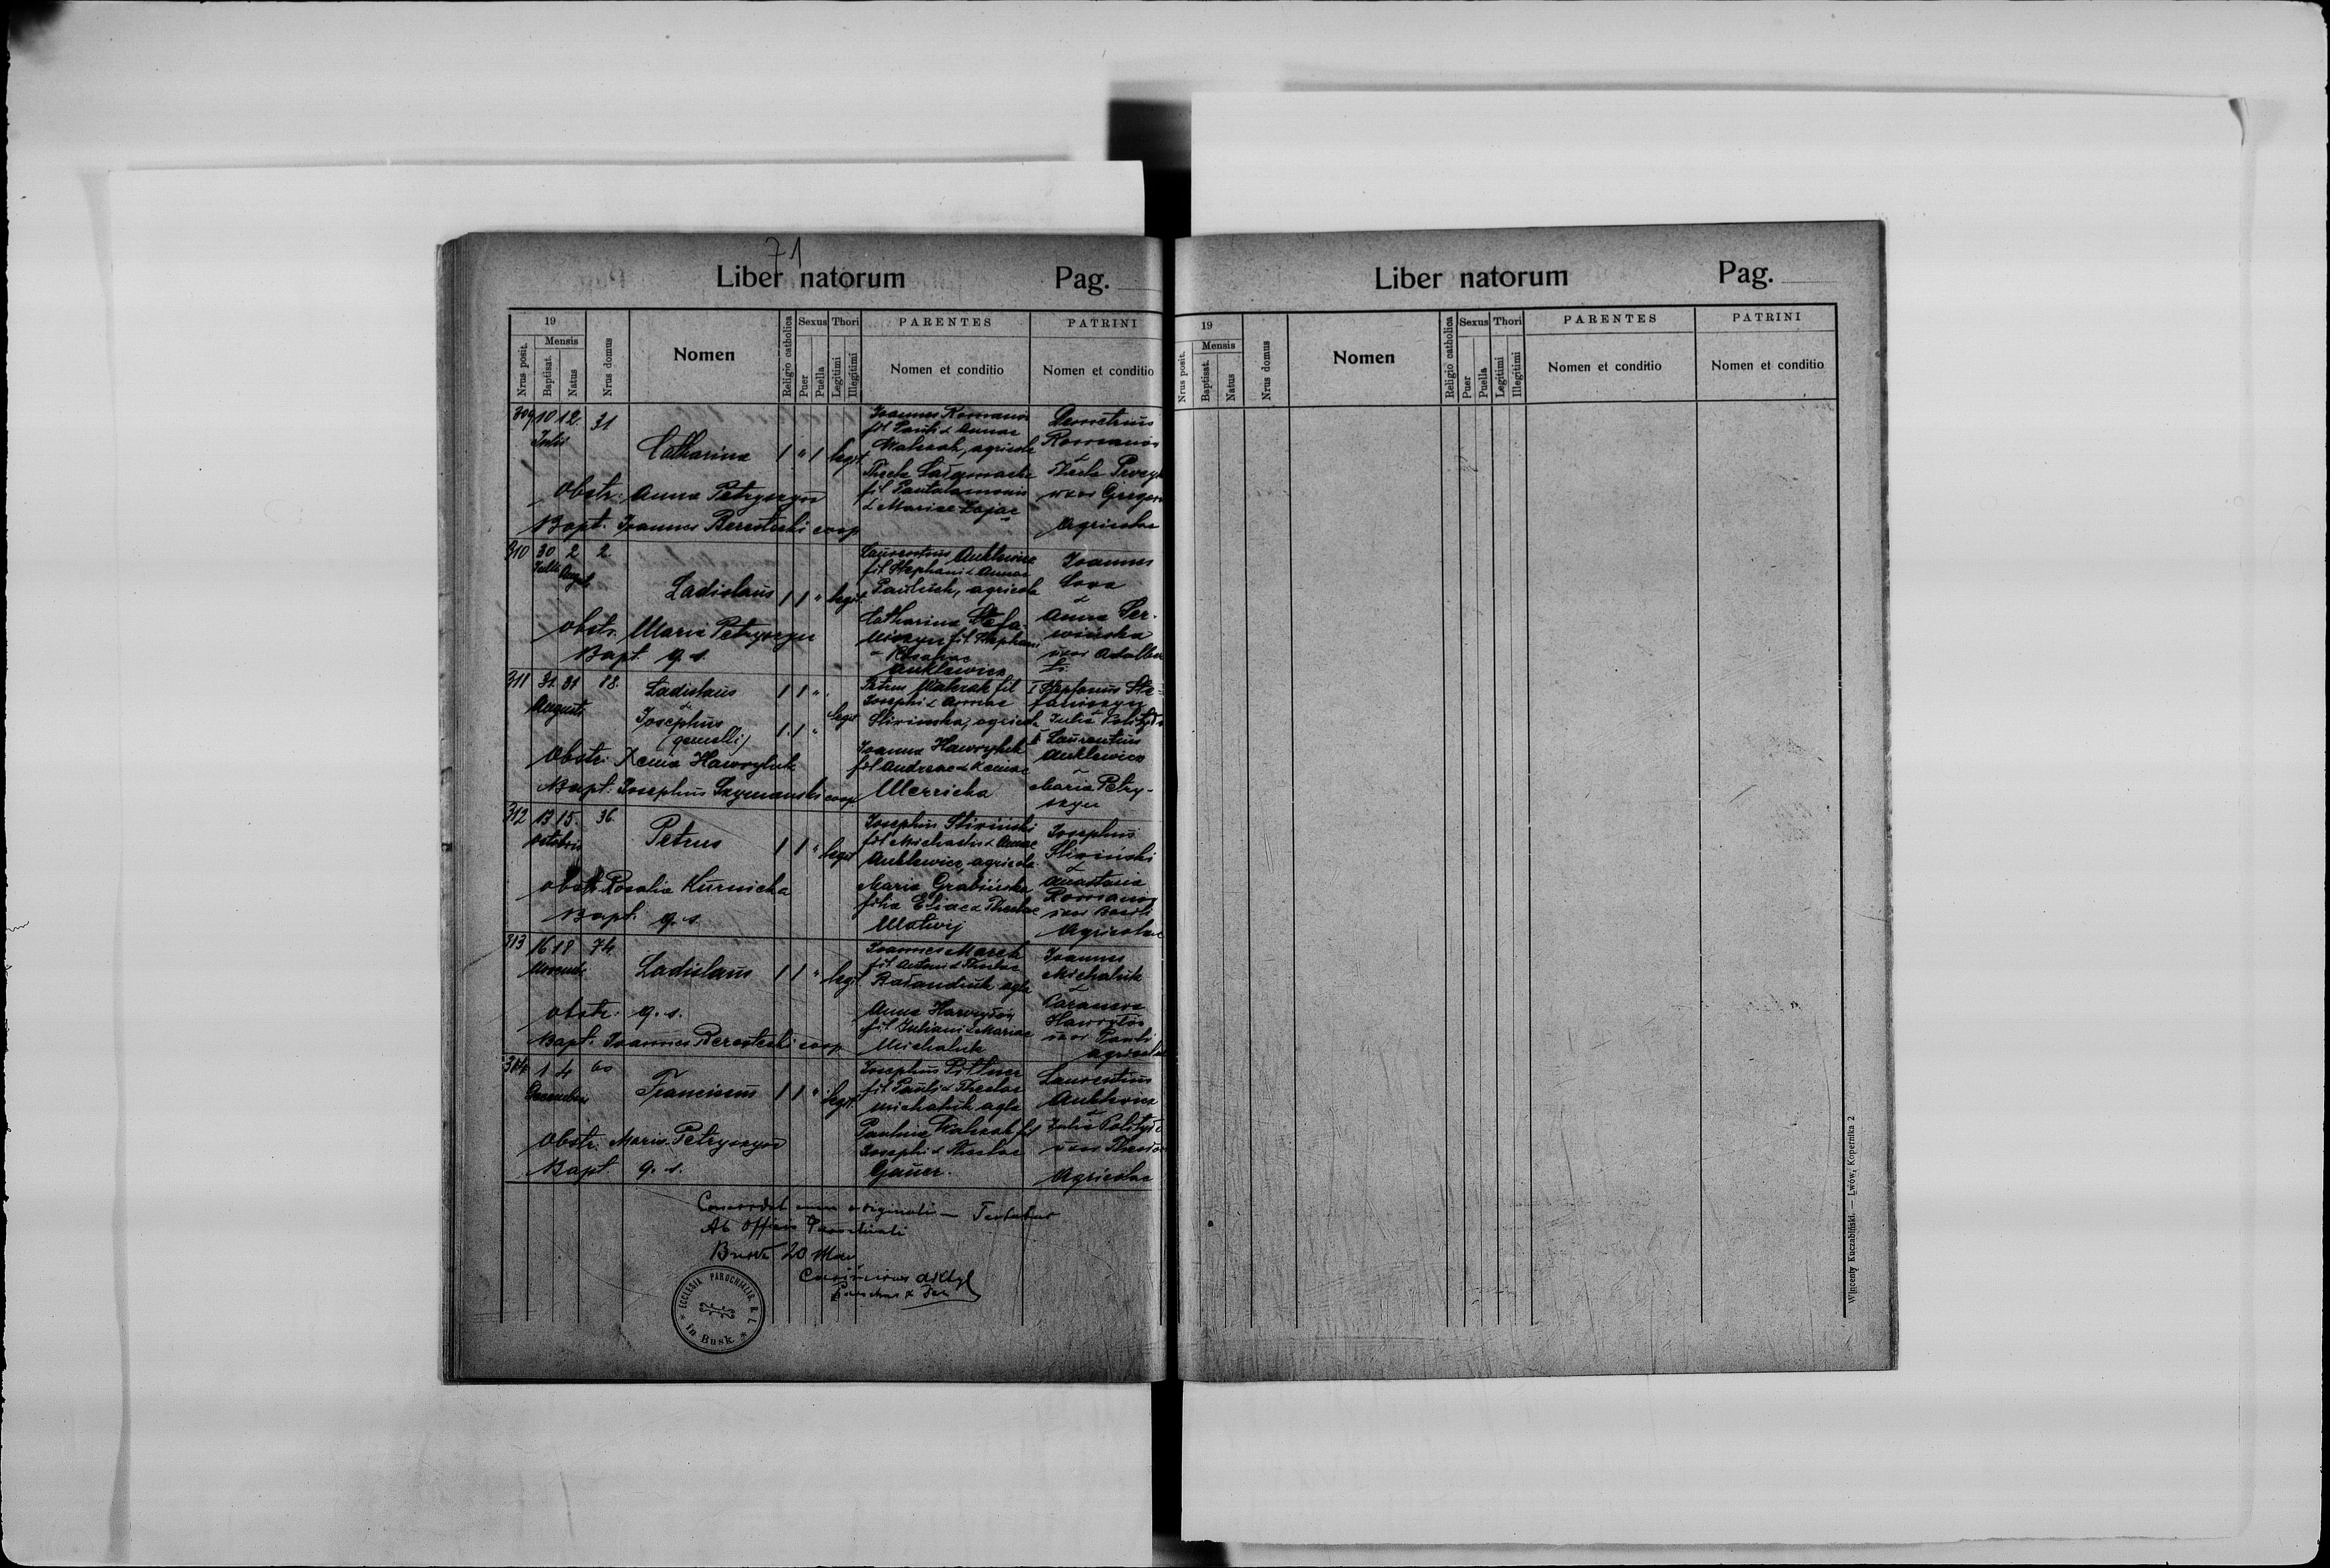 71
Liber natorum Pag.
19
Mensis
Nrus posit.
Baptisat.
Natus
Nrus domus
Nomen
Religio catholica
Sexus
Puer
Puella
Thori
Legitimi
Illegitimi
PARENTES
Nomen et conditio
PATRINI
Nomen et conditio
309 10 12. 31
Julii
Catharina 1 " 1 legit
Joannes Romanów
fil Pauli & Annae
Walczak, agricola
Thecla
fil Pantalamonis
& Mariae Zając
Demetrius
Romanów
&
Thecla
uxor Gregorii
Agricolae
Obstr. Anna Petryszyn
Bapt. Joannes Berestecki coop
310 30 2 2.
Julii Augusti
Ladislaus 1 1 " legit.
Laurentius Anklewicz
fil Stephani & Annae
Pauluch, agricola
Catharina Stefa-
niszyn fil Stephani
& Rosaliae
Anklewicz
Joannes
&
Anna Ser-
wińska
uxor Adalber
ti
Obstr. Maria Petryszyn
Bapt. q. s.
311 31. 31 88.
Augusti
Ladislaus 1 1 " legit
&
Josephus 1. 1 "
(gemelli)
Petrus Walczak fil
Josephi & Annae
Śliwińska, agricola
Joanna Hawryluk
fil Andreae & Xeniae
I Stephanus Ste-
faniszyn
Julia Polityło
II Laurentius
Anklewicz
&
Maria Petry-
szyn
Obstr. Xenia Hawryluk
Bapt. Josephus Szymański coop.
312 13 15. 36.
Octobris
Petrus 1 1 " legit
Josephus Śliwiński
fil Michaelis & Annae
Anklewicz, agricola
Maria Grabińska
filia Eliae & Theclae
Matwij
Josephus
Śliwiński
&
Anastasia
Romanów
uxor Basili
Agricolae
obstr. Rosalia Kurnicka
Bapt. q. s.
313 16 18 74
Novembr
Ladislaus 1 1 " legit
Joannes Marek
fil Antoni & Theclae
agla
Anna Hawryłów
fil Juliani & Mariae
Michaluk
Joannes
Michaluk
&
Hawryłów
uxor Pauli
agricolae
obstr. q. s.
Bapt. Joannes Berestecki coop
314 1 4 60
Decembris
Franciscus 1 1 " legit.
Josephus Pittner
fil Pauli & Theclae
Michaluk agla
Paulina Walczak fil
Josephi & Theclae
Gauer.
Laurentius
Anklewicz
&
Julia Polityło
uxor Theodori
Agricolae
Obstr. Maria Petryszyn
Bapt q. s.
Concordat cum originali — Testatur
Ab Officio Parochiali
Busk 20 Maii
Casimirus
Parochus &
ECCLESIA PAROCHIALIS. R. L.
in Busk
Liber natorum Pag.
19
Mensis
Nrus posit.
Baptisat.
Natus
Nrus domus
Nomen
Religio catholica
Sexus
Puer
Puella
Thori
Legitimi
Illegitimi
PARENTES
Nomen et conditio
PATRINI
Nomen et conditio
Wincenty Kuczabiński. — Lwów, Kopernika 2